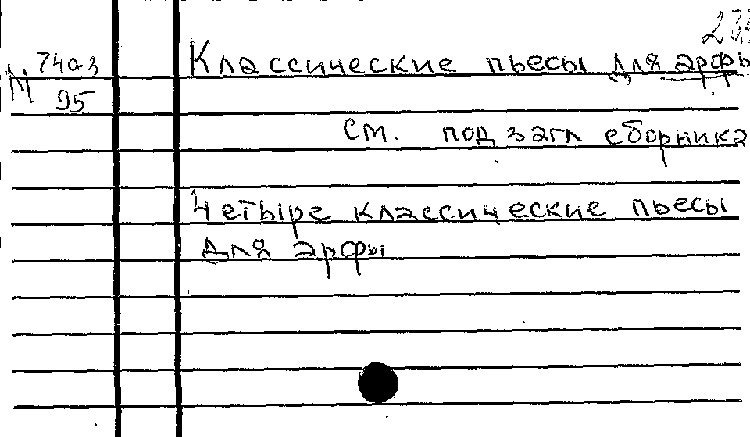 Классические пьесы для арфы
М 74а3
95
см. под загл сборника
Четыре классические пьесы
для арфы